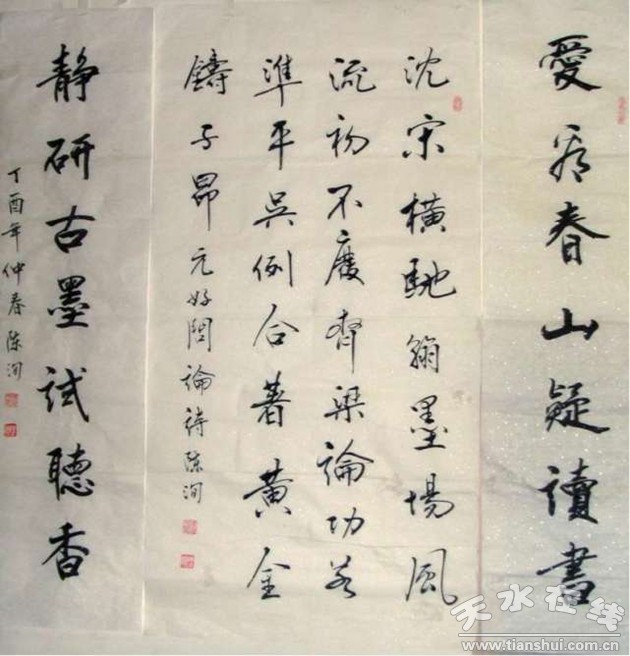 愛看春山疑讀書
沈宋橫馳翰墨場風
流初不廢齊梁論功若
準平吳例合著黃金
鑄子昂元好問論詩陈洵
静研古墨試聽香
丁酉年仲春陈洵
天水在线
www.tianshui.com.cn